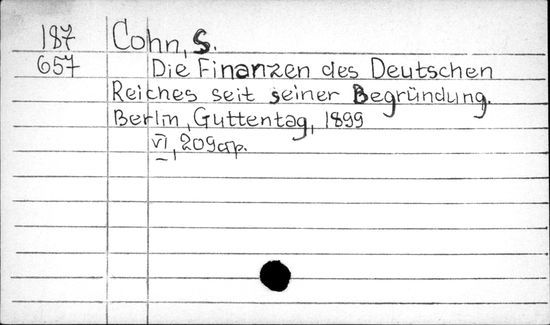 187 Cohn, S.
657 Die Finanzen des Deutschen
Reiches seit seiner Begründung.
Berlin, Guttentag, 1899
VI, 209 стр.